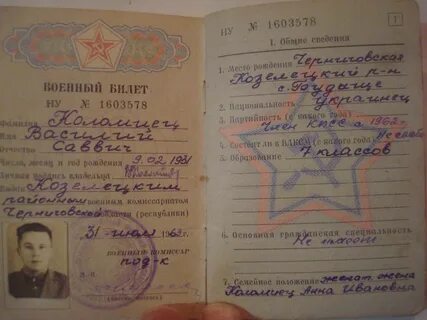 ВОЕННЫЙ БИЛЕТ
НУ № 1603578
Фамилия Коломиец
Имя Василий
Отчество Саввич
Число, месяц и год рождения 9.02.1931
Личная подпись владельца
Выдан Козелецким
районным военным комиссариатом
Черниговской (республики)
31 июля 1963 г.
ВОЕННЫЙ КОМИССАР
под-к
НУ № 1603578
1
I. Общие сведения
1. Место рождения Черниговская
Козелецкий р-н
с. Будище
2. Национальность Украинец
3. Партийность (с какого года)
Член КПСС с 1962 г.
4. Состоит ли в ВЛКСМ (с какого года)
5. Образование 7 классов
6. Основная гражданская специальность
Не имеет
7. Семейное положение женат жена
Коломиец Анна Ивановна